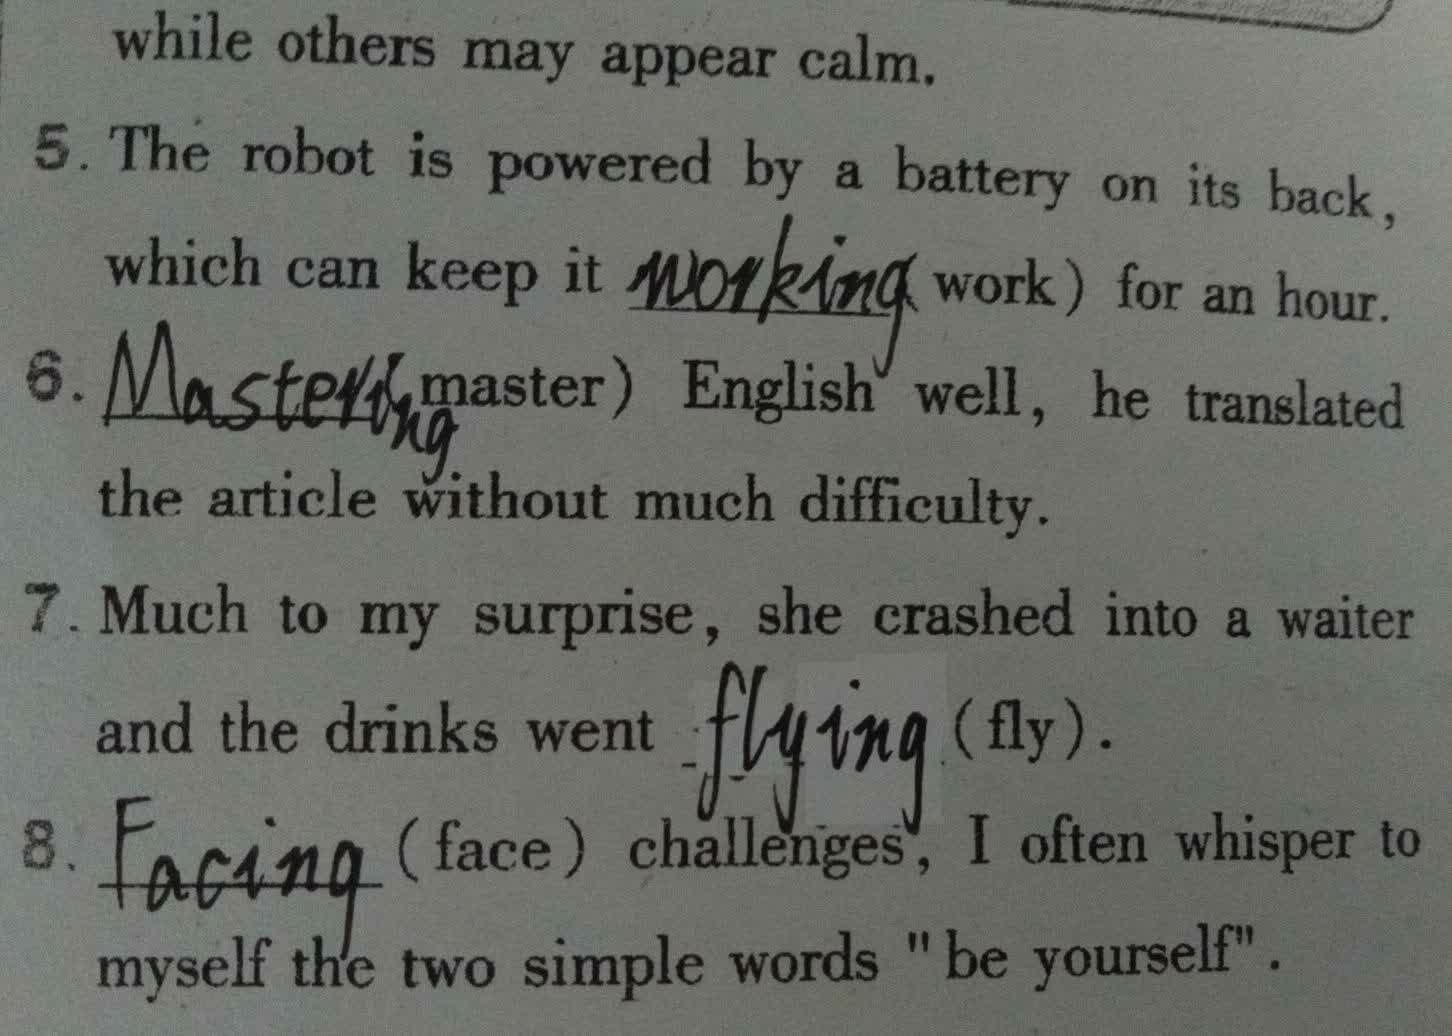 while others may appear calm.
5. The robot is powered by a battery on its back,
which can keep it working (work) for an hour.
6. Mastering (master) English well, he translated
the article without much difficulty.
7. Much to my surprise, she crashed into a waiter
and the drinks went flying (fly).
8. Facing (face) challenges, I often whisper to
myself the two simple words "be yourself".